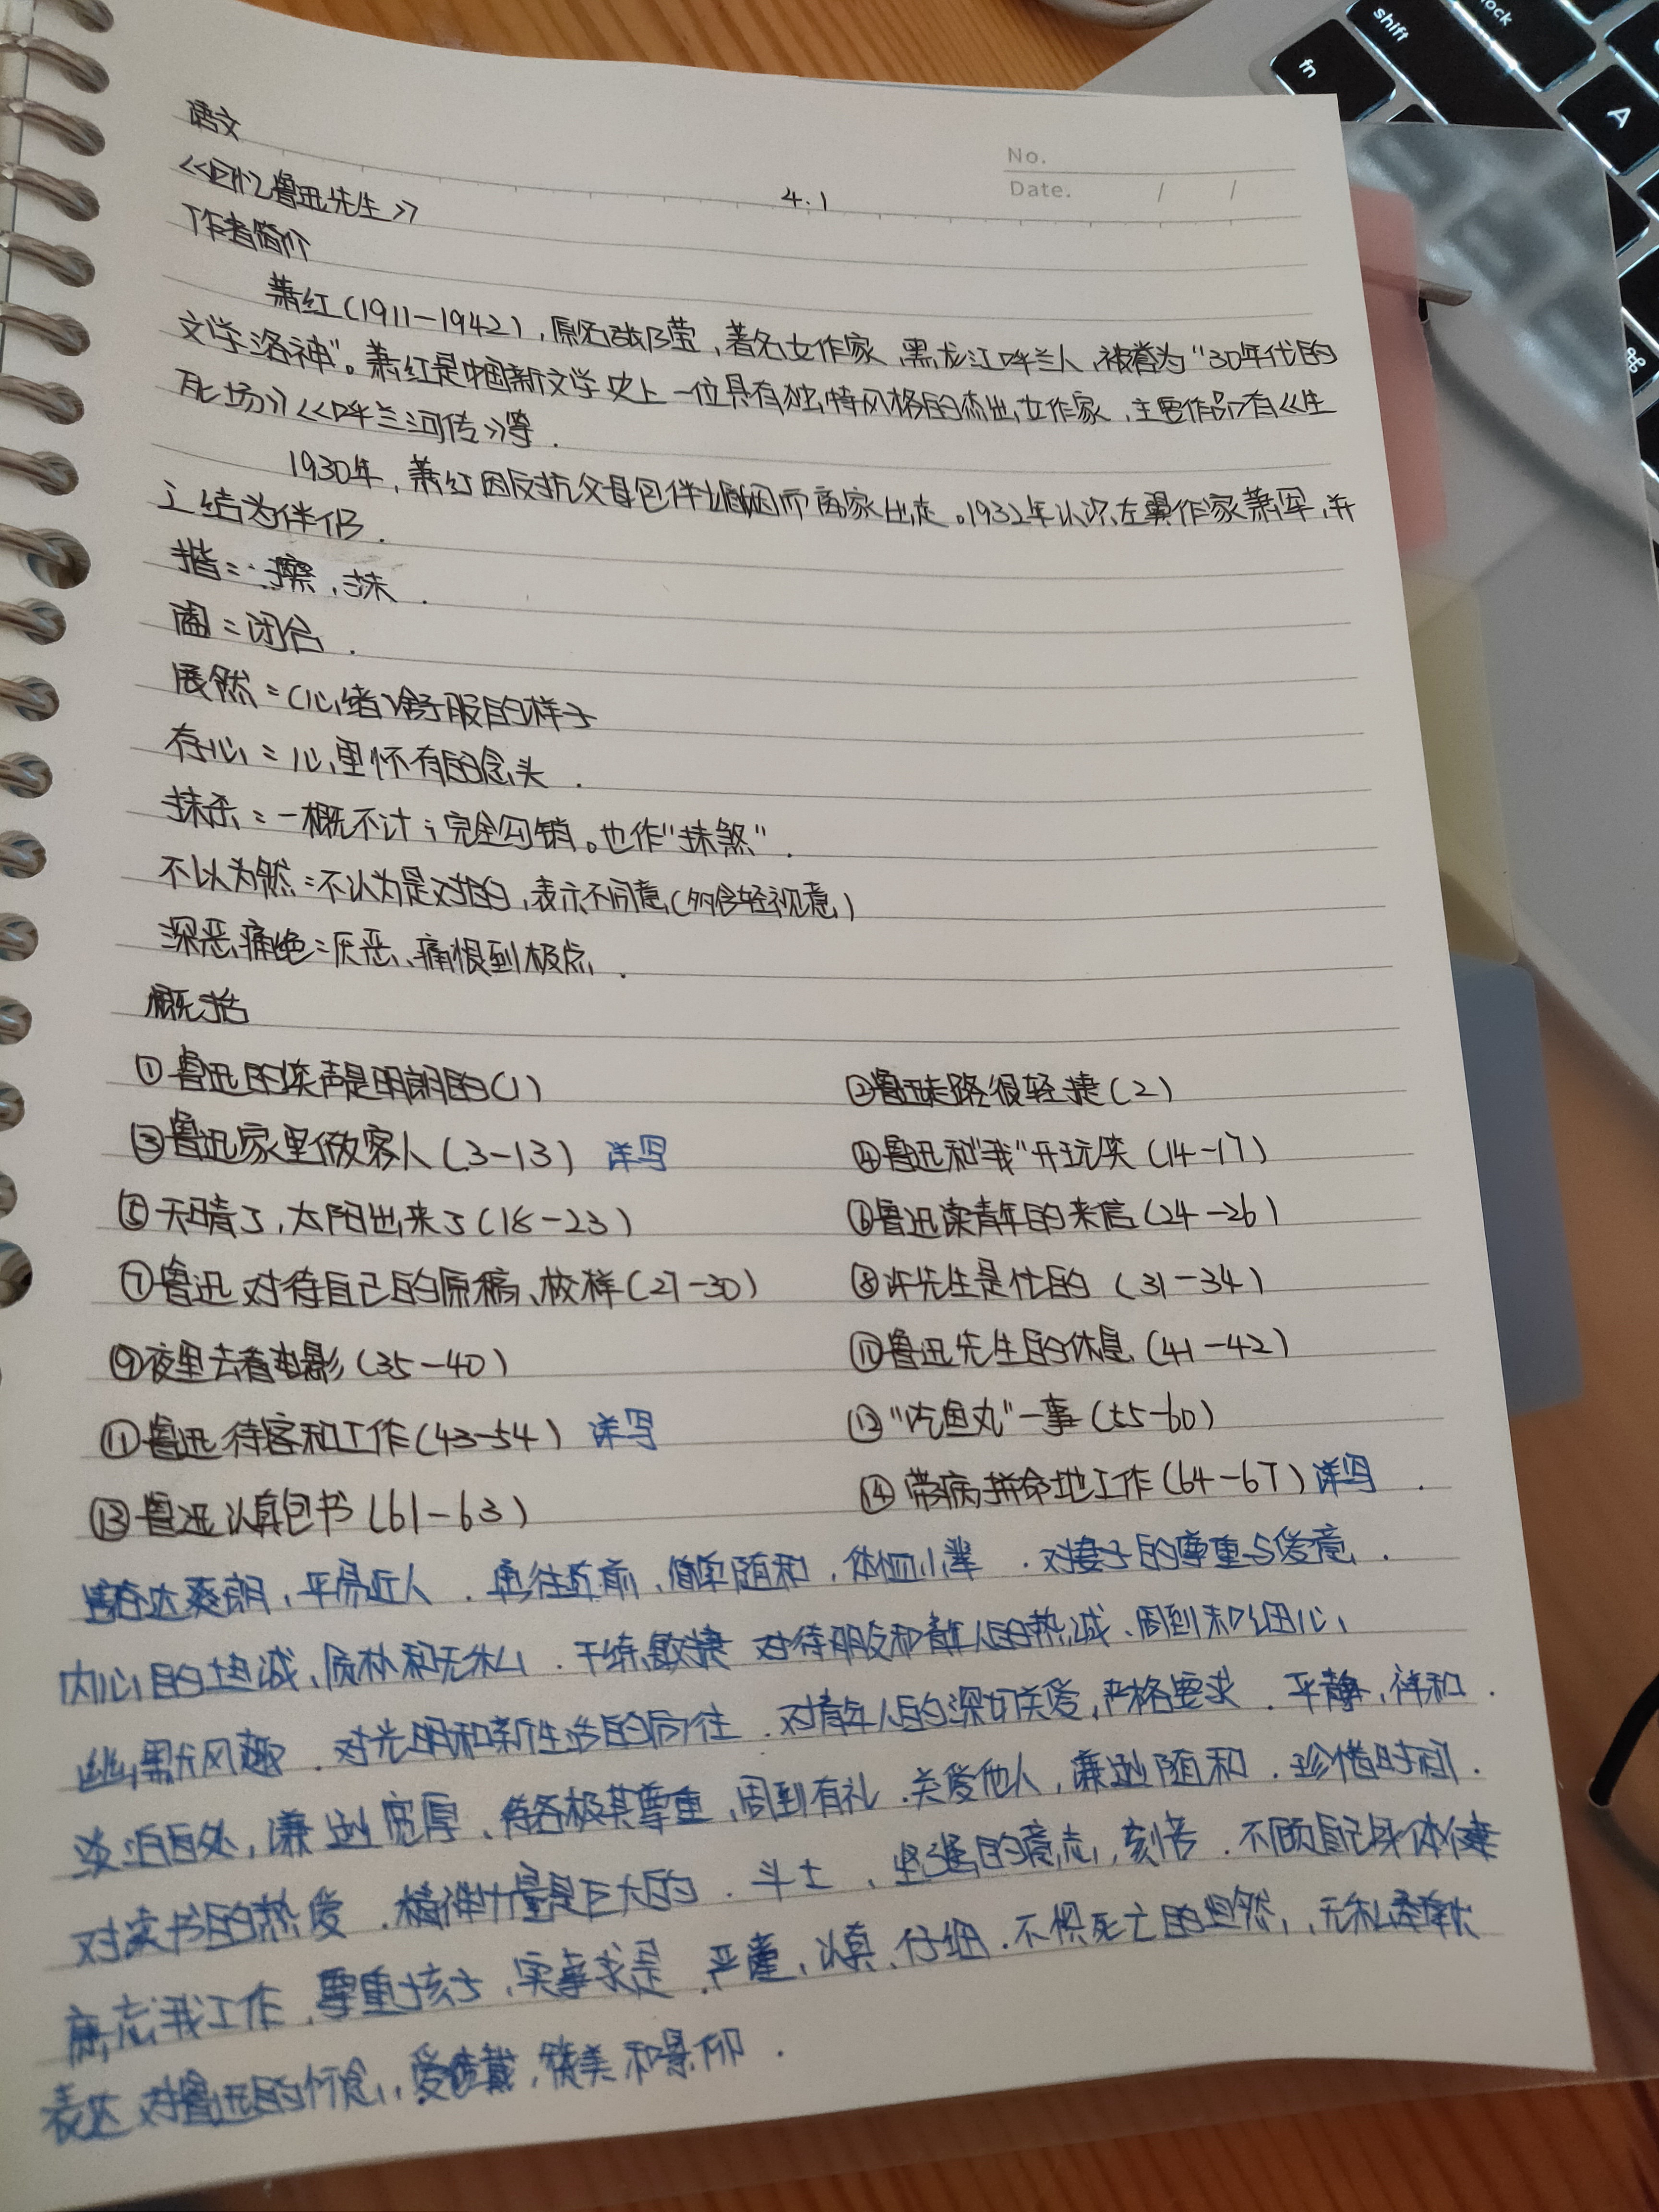 语文
No.
Date. / /
<<回忆鲁迅先生>> 4.1
作者简介
萧红(1911-1942),原名张乃莹,著名女作家,黑龙江呼兰人,被誉为"30年代的
文学洛神"。萧红是中国新文学史上一位具有独特风格的杰出女作家,主要作品有<<生
死场>><<呼兰河传>>等.
1930年,萧红因反抗父母包伴婚姻而离家出走。1932年认识左翼作家萧军,并
结为伴侣.
揩:擦,抹.
阖:闭合.
展然:(心绪)舒服的样子
存心:心里怀有的念头.
抹杀:一概不计;完全勾销。也作"抹煞".
不以为然:不认为是对的,表示不同意(多含轻视意)
深恶痛绝:厌恶、痛恨到极点.
概括
①鲁迅的笑声是明朗的(1) ②鲁迅走路很轻捷(2)
③鲁迅家里做客人(3-13) 详写 ④鲁迅和"我"开玩笑(14-17)
⑤天晴了,太阳出来了(18-23) ⑥鲁迅读青年的来信(24-26)
⑦鲁迅对待自己的原稿、校样(27-30) ⑧许先生是忙的(31-34)
⑨夜里去看电影(35-40) ⑩鲁迅先生的休息(41-42)
⑪鲁迅待客和工作(43-54) 详写 ⑫"吃鱼丸"一事(55-60)
⑬鲁迅认真包书(61-63) ⑭带病拼命地工作(64-67)详写.
达爽朗,平易近人.直前,简单随和,体恤小辈.对妻子的尊重与爱意.
内心的热诚,质朴和无私.干练敏捷 对待朋友和青年人的热诚、周到和细心
幽默风趣.对光明和新生活的向往.对青年人的深切关爱,严格要求.平静,祥和.
淡泊自处,谦逊宽厚、待客极其尊重,周到有礼.关爱他人,谦逊随和.珍惜时间.
对读书的热爱.精神力量是巨大的.斗士,坚强的意志,刻苦.不顾自己身体健
康,忘我工作,尊重孩子,实事求是.严谨,认真,仔细.不惧死亡的坦然,无私奉献
表达对鲁迅的怀念,爱戴,赞美和景仰.